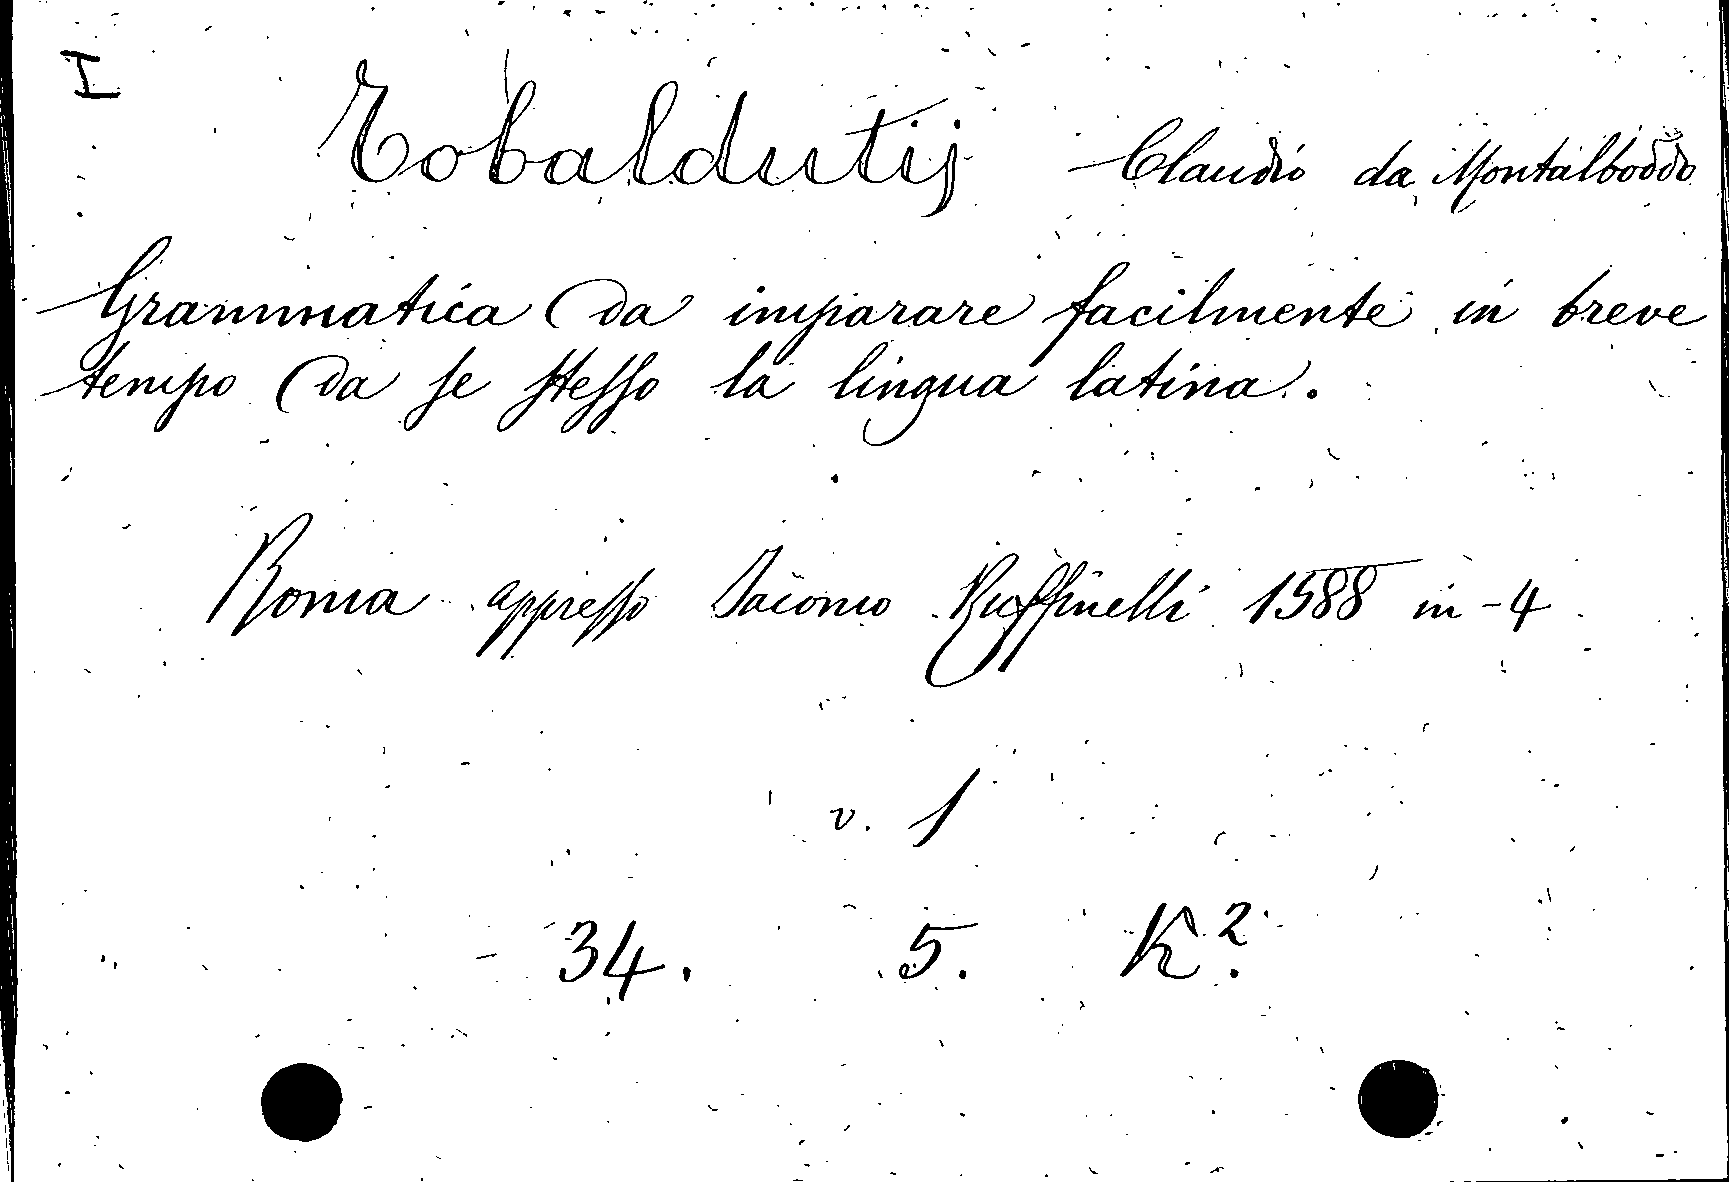 I
Tobaldutij Claudio da Montalboddo
Grammatica da imparare facilmente in breve
tempo da se stesso la lingua latina.
Roma appresso Iacomo Ruffinelli 1588 in-4
v. 1
34. 5. K².